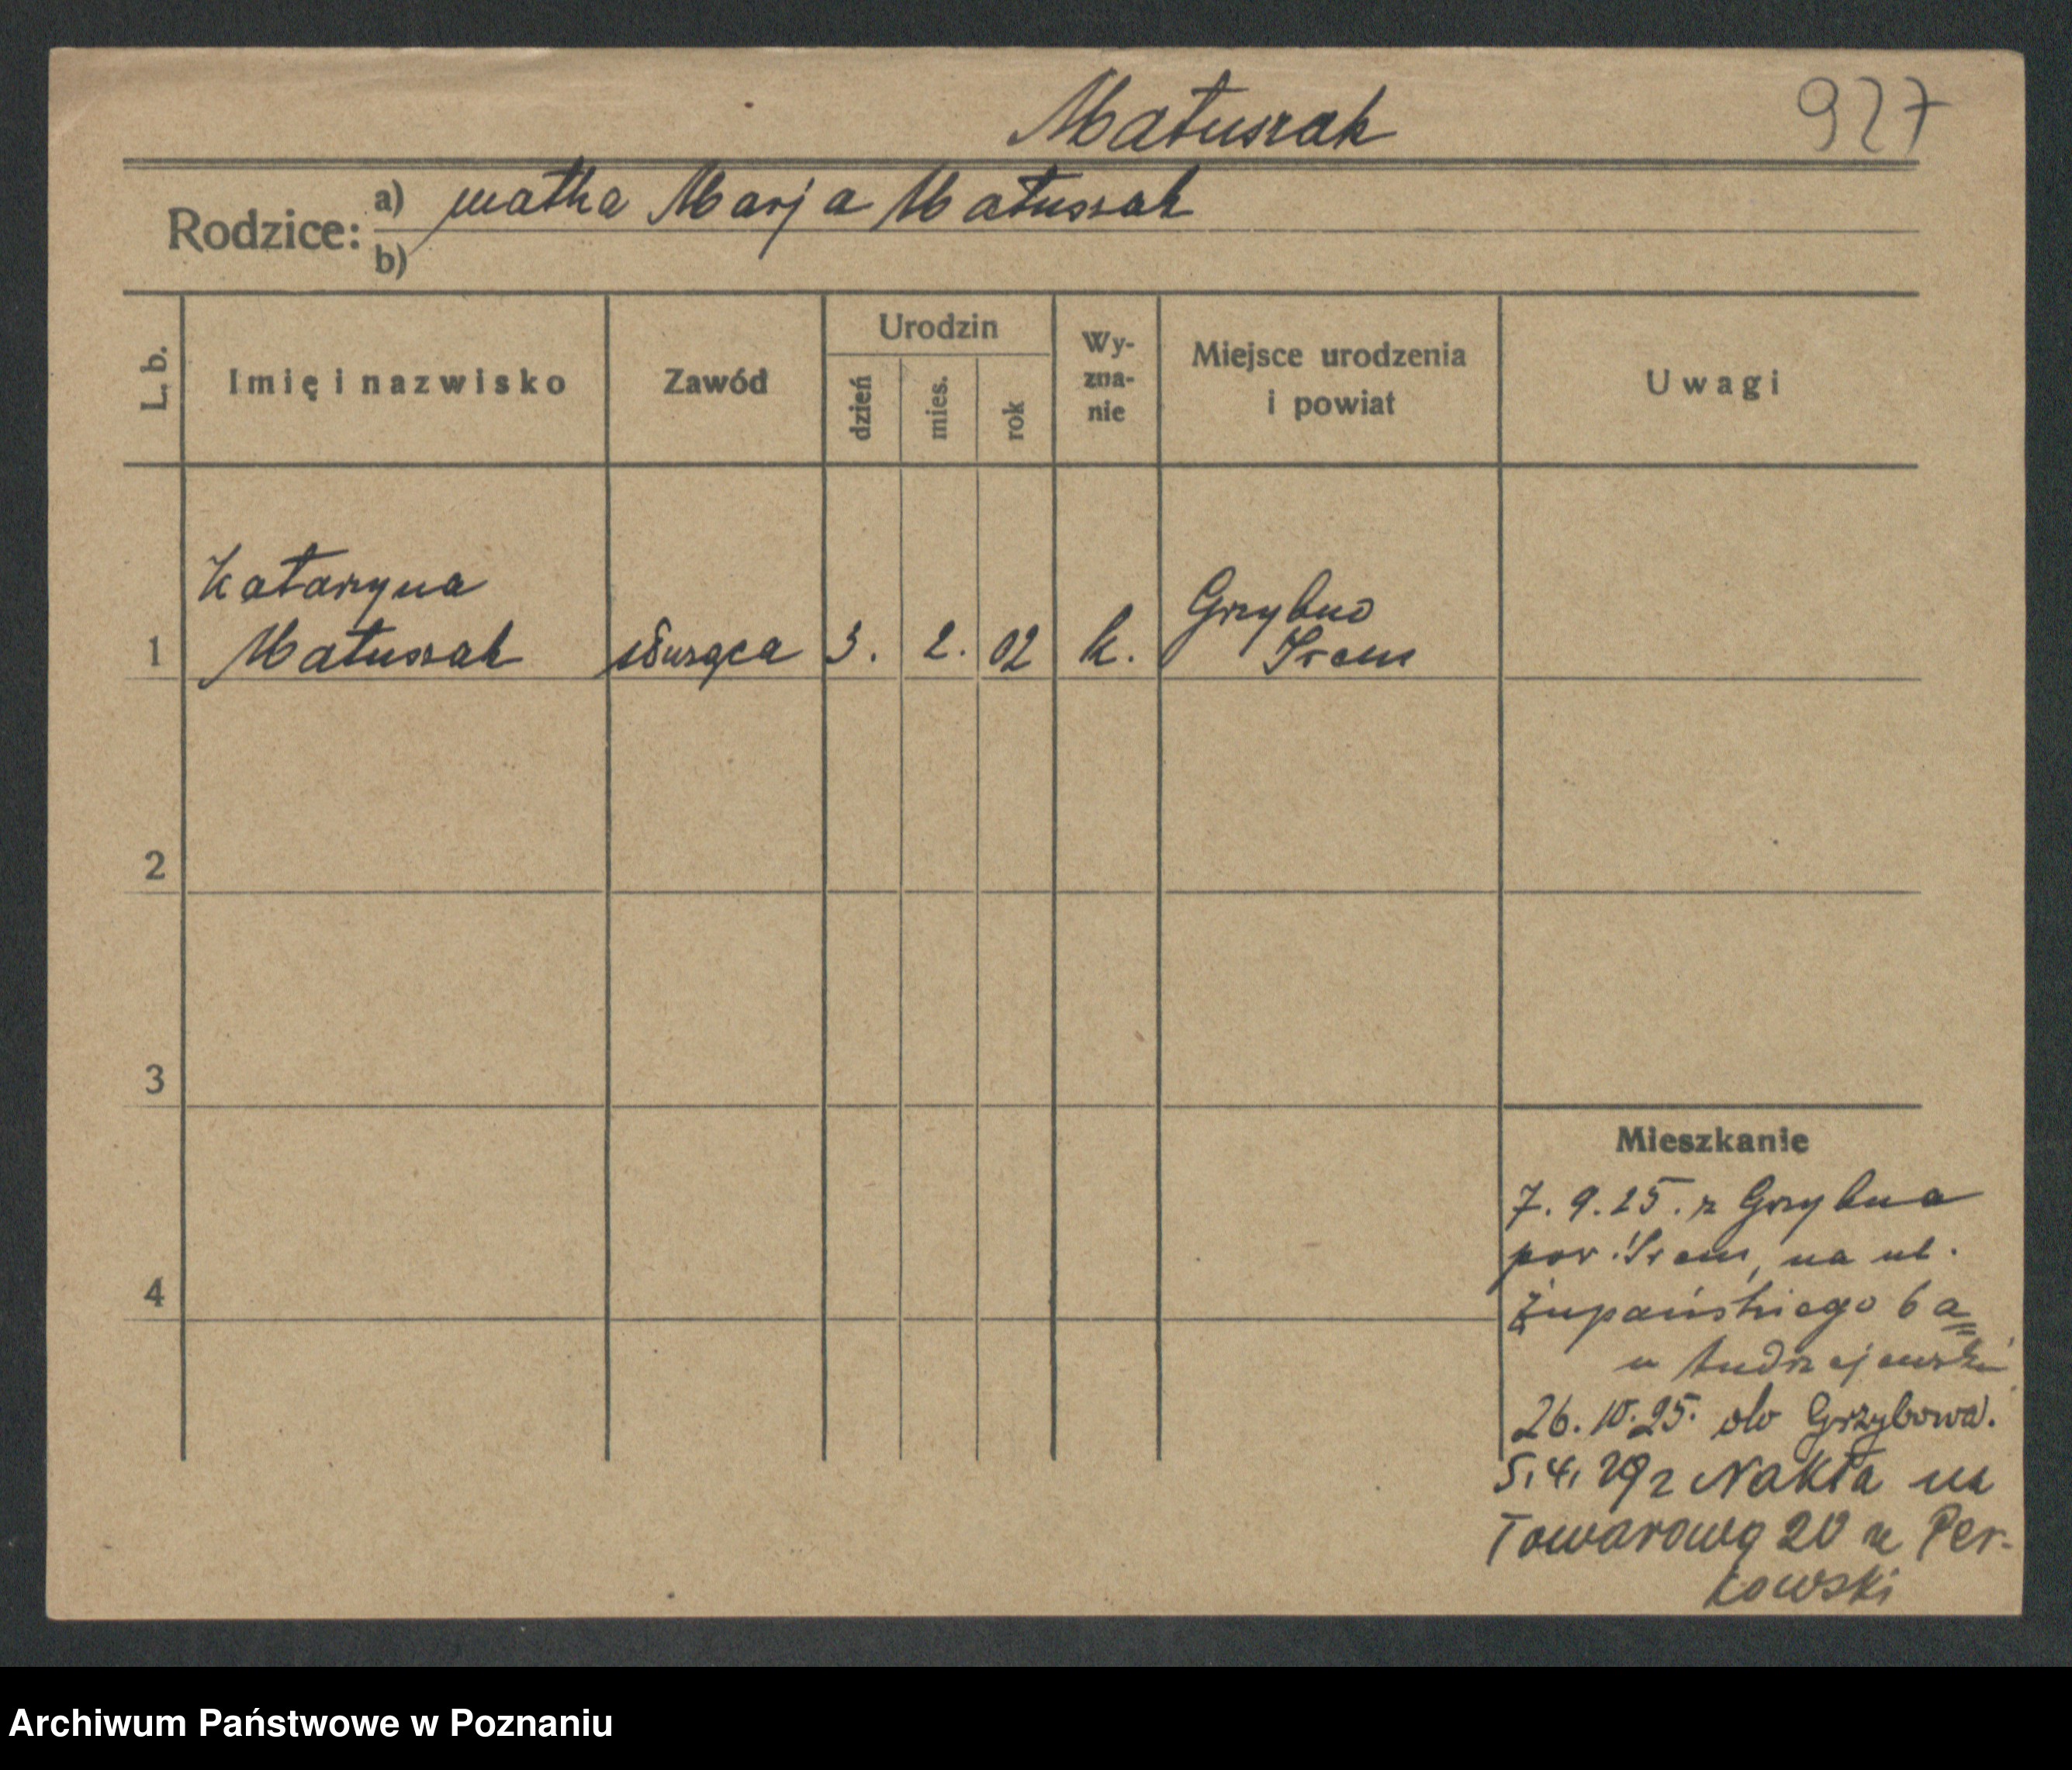 Matuszak
927
Rodzice: a) matka Marja Matuszak
b)
L. b.
Imię i nazwisko
Zawód
Urodzin
dzień
mies.
rok
Wy-
zna-
nie
Miejsce urodzenia
i powiat
Uwagi
Katarzyna
1 Matuszak służąca 3. 2. 02 k. Grzybno
Śrem
2
3
4
Mieszkanie
7. 9. 25. z Grzybna
pow. Śrem, na ul.
Żupańskiego 6a
u Andrzejewski
26. 10. 25. do Grzybowa.
5. 4. 29 z Nakła na
Towarową 20 u Per-
kowski
Archiwum Państwowe w Poznaniu